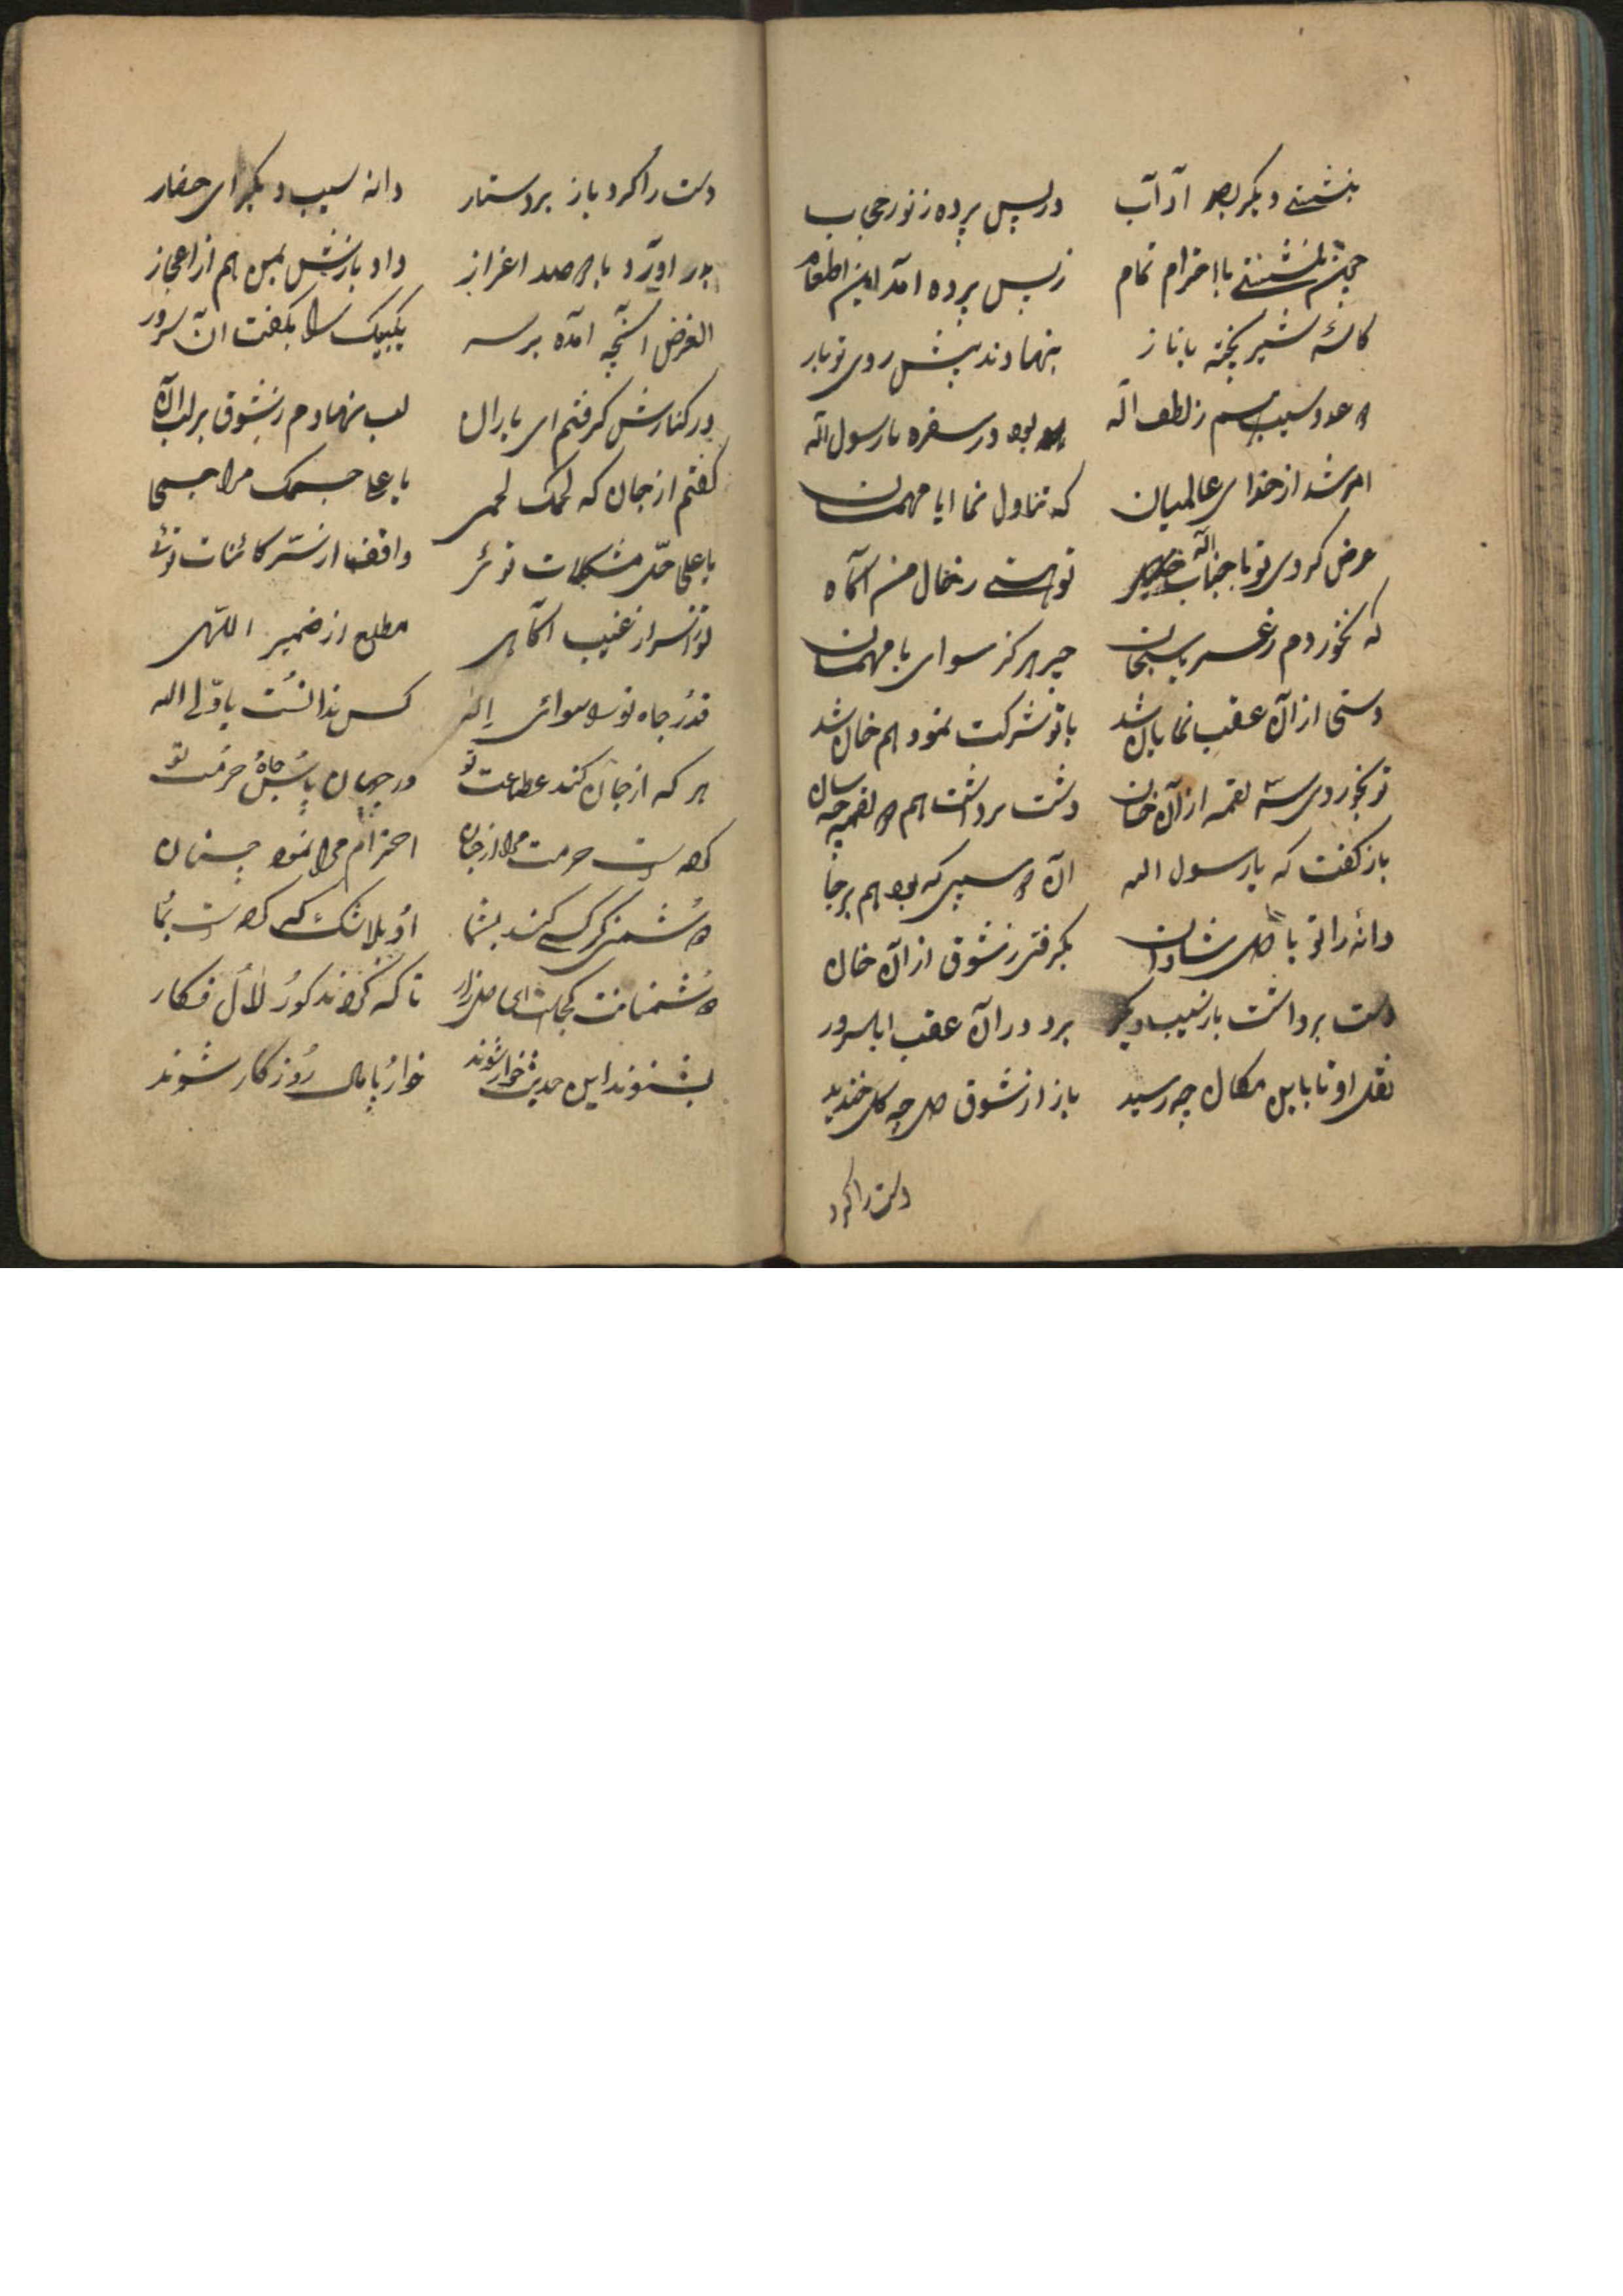 بنشستی دیگر بصد آداب در پس پرده ز نور حجاب
چونکه بنشستی با احترام تمام ز پس پرده آمد این اطعام
کاسه شیر پخته با ناز بنهادند پیش روی تو باز
دو عدد سیب هم ز لطف اله بود در سفره یا رسول الله
امر شد از خدای عالمیان که تناول نما ایا مهمان
عرض کردی تو با جناب اله تو هستی ز حال من آگاه
که نخوردم ز غیر یا سبحان چیز هرگز سوای با مهمان
دستی از آن عقب نمایان شد با تو شرکت نمود هم خان شد
تو بخوردی سه لقمه از آن خان دست برداشت هم دو لقمه چه سان
باز گفت که یا رسول الله آن دو سیبی که بود هم برجا
دانه را تو با دل شادان بگرفتی ز شوق از آن خان
دست برداشت باز سیب دیگر برد در آن عقب ایا سرور
نقل او تا باین مکان چه رسید باز از شوق دل چه گل خندید
دست را کرد
دست را کرد باز بر دستار دانه سیب دیگر ای حضار
بدر آورد با دو صد اعزاز داد بازش بمن هم از اعجاز
الغرض آنچه آمده بر سر یکبیک را بگفت آن سرور
در کنارش گرفتم ای یاران لب نهادم ز شوق بر لب آن
گفتم از جان که لحمک لحمی یا علی جسمک مرا جسمی
یا علی حل مشکلات توئی واقف از سر کائنات توئی
تو ز اسرار غیب آگاهی مطلع از ضمیر اللهی
قدر جاه تو را سوای اله کس ندانست یا ولی الله
هر که از جان کند عطاعت تو در جهان پاس جاه حرمت تو
کرده است حرمت مرا از جان احترام مرا نمود چنان
دشمنی گر کسی کند بشما او بلا شک که کرده است بما
دشمنانت کجاست ای دل زار تا که گردند کور لال فکار
بشنوند این حدیث خوار شوند خوار پامال روزگار شوند